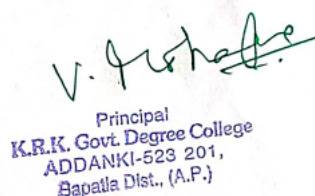 V.
Principal
K.R.K. Govt. Degree College
ADDANKI-523 201,
Bapatla Dist., (A.P.)